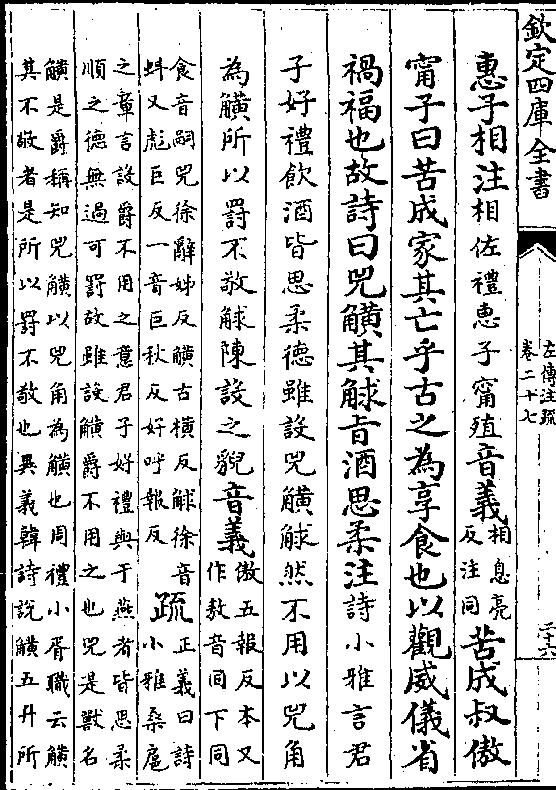 欽定四庫全書
左傳注疏
卷二十七
二十六
惠子相注相佐禮惠子甯殖音義相息亮反注同苦成叔傲
甯子曰苦成家其亡乎古之為享食也以觀威儀省
禍福也故詩曰兕觵其觩㫖酒思柔注詩小雅言君
子好禮飲酒皆思柔德雖設兕觵觩然不用以兕角
為觵所以罰不敬觩陳設之貌音義傲五報反本又作敖音同下同
食音嗣兕徐辭姊反觵古橫反觩徐音
蚪又彪巨反一音巨秋反好呼報反
疏正義曰詩
小雅桑扈
之羣言設爵不用之意君子好禮與于燕者皆思柔
順之德無過可罰故雖設觵爵不用之也兕是獸名
觵是爵稱知兕觵以兕角為觵也周禮小胥職云觵
其不敬者是所以罰不敬也異義韓詩說觵五升所